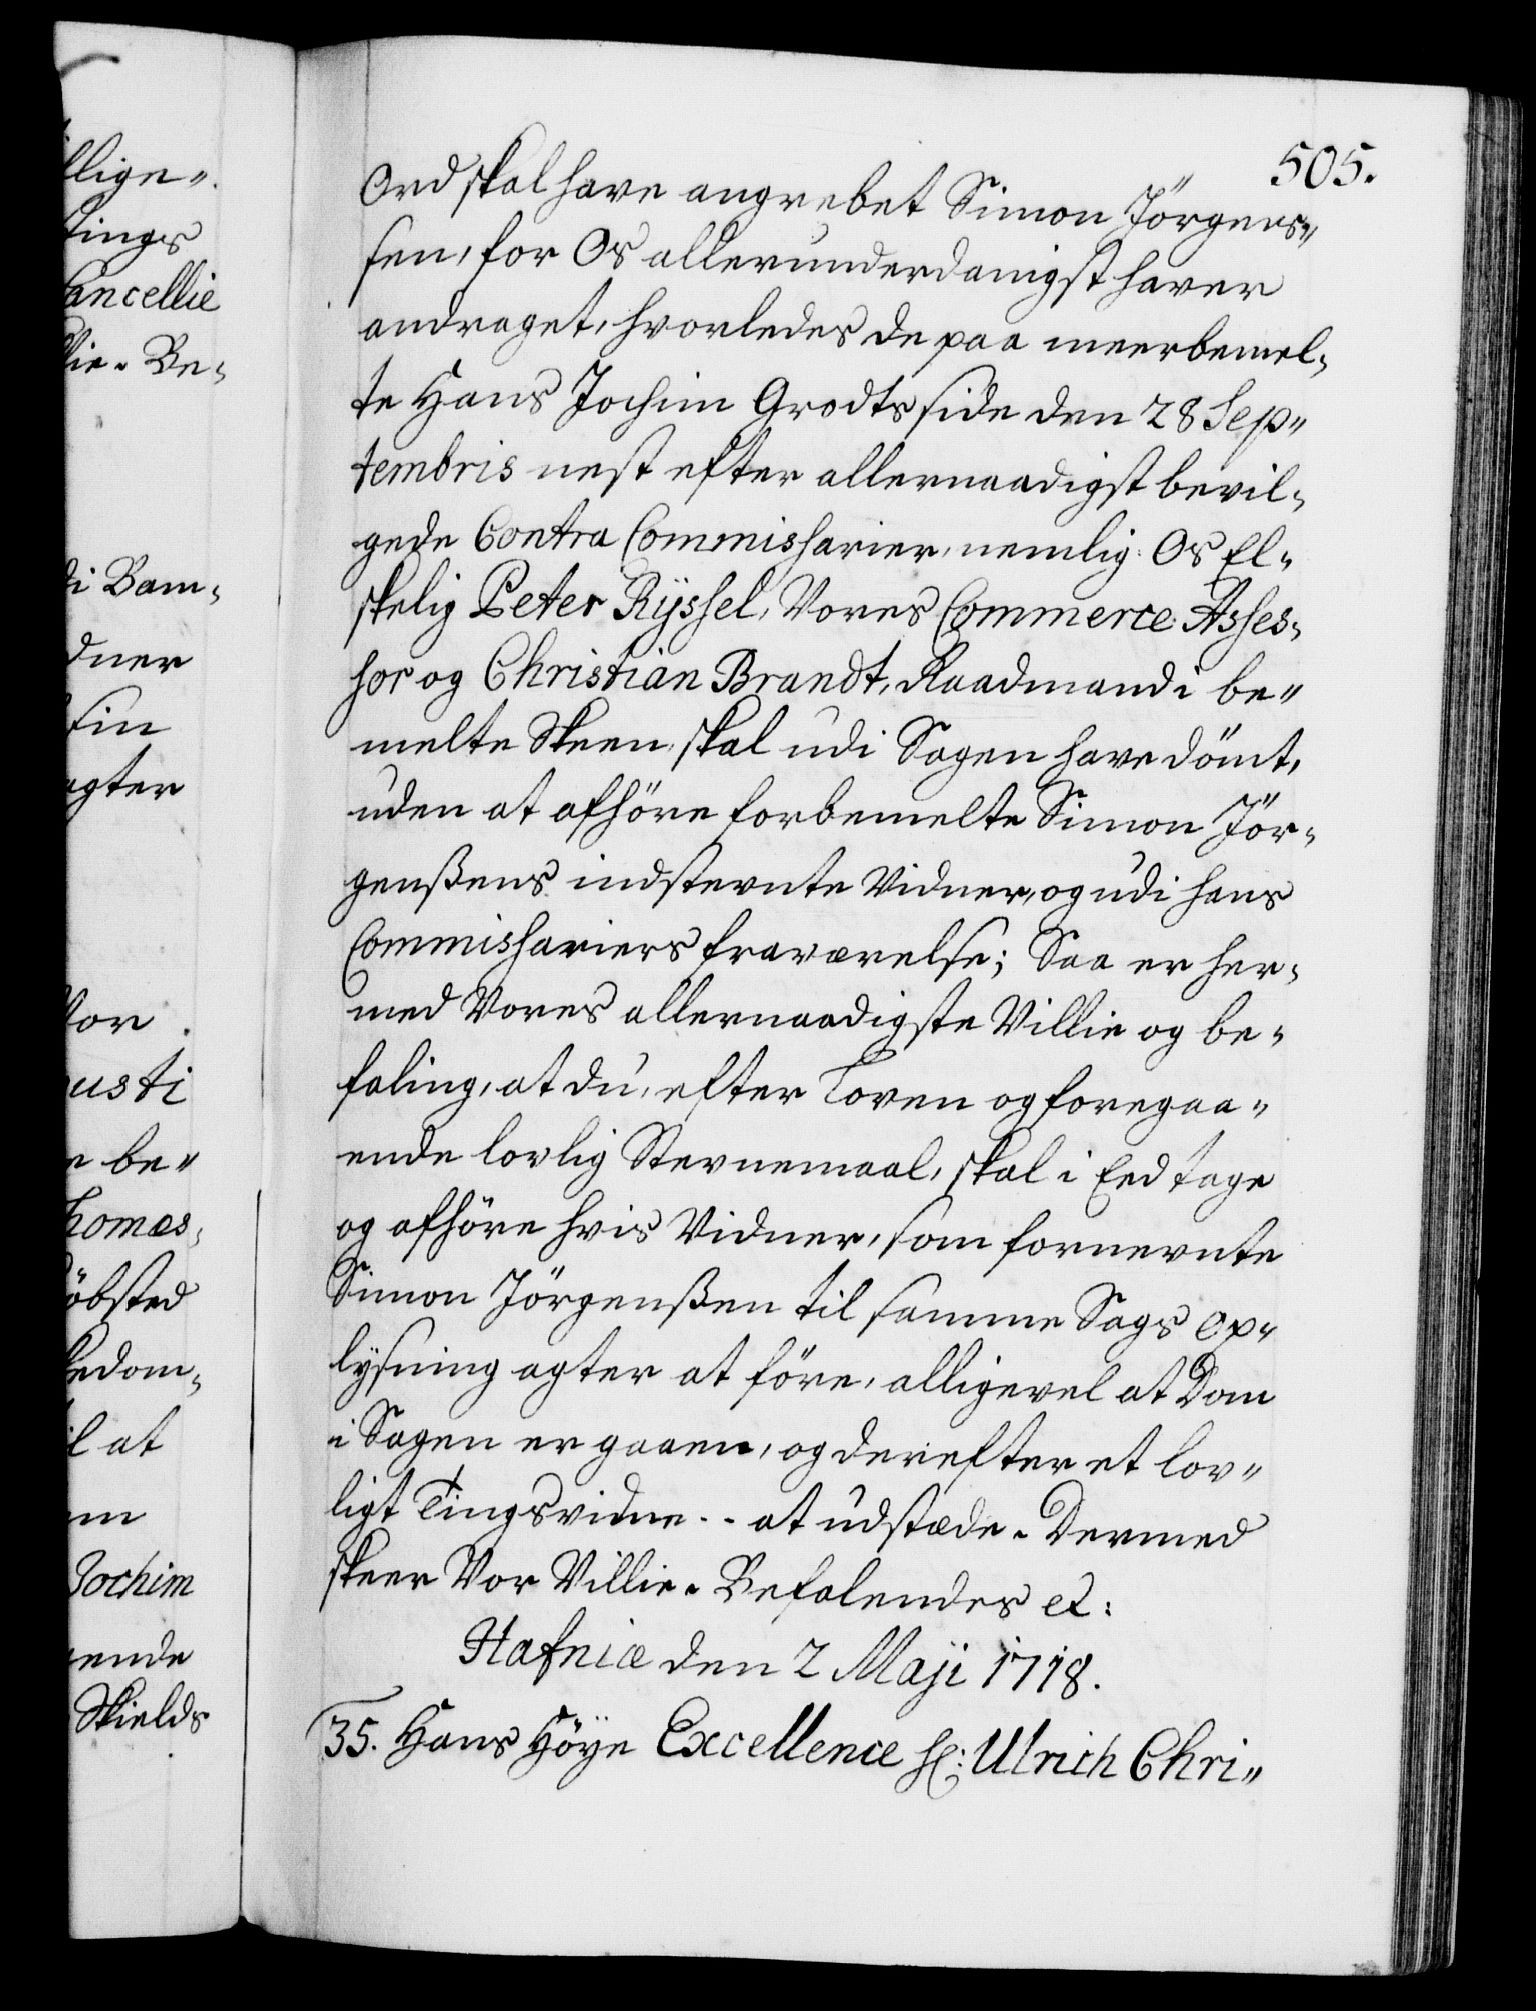 505.
Ord skal have angrebet Simon Jörgens„
sen, for Os allerunderdanigst haver
andraget, hvorledes de paa meerbemel„
te Hans Jochim Grodts side den 28 Sep„
tembris nest efter allernaadigst bevil„
gede Contra Commissarier, nemlig: Os El„
skelig Peter Ryssel, Vores Commerce-Asses„
sor og Christian Brandt, Raadmand i be„
melte Skeen, skal udi Sagen have dömt,
uden at afhöre forbemelte Simon Jör„
genßens indstevnte Vidner, og udi hans
Commissariers fraværelse; Saa er her„
med Vores allernaadigste Villie og be„
faling, at du, efter Loven og foregaa„
ende lovlig Stevnemaal, skal i Eed tage
og afhöre hvis Vidner, som fornevnte
Simon Jörgenßen til samme Sags op„
lysning agter at före, alligevel at Dom
i Sagen er gaaen, og derefter et lov„
ligt Tingsvidne - - at udstæde. Dermed
skeer Vor Villie. Befalendes et:
Hafniæ den 2 Maji 1718.
35. Hans Höye Excellence Hr: Ulrich Chri„
llige„.
tings
Cancellie
llie. Be„
di Bam„
dner
sin
agter
Vor
usti
e be„
homes„
öbsted
kedom„
il at
Jochim
ende
Skields